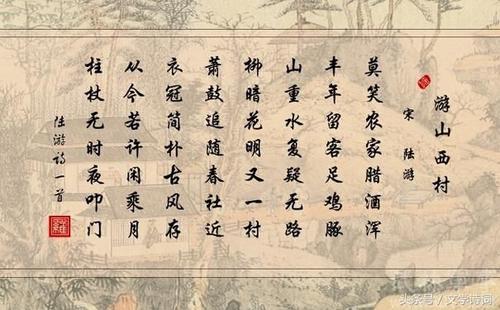 游山西村
宋 陆游
莫笑农家腊酒浑
丰年留客足鸡豚
山重水复疑无路
柳暗花明又一村
萧鼓追随春社近
衣冠简朴古风存
从今若许闲乘月
柱杖无时夜叩门
陆游诗一首
头条号 / 文学诗词